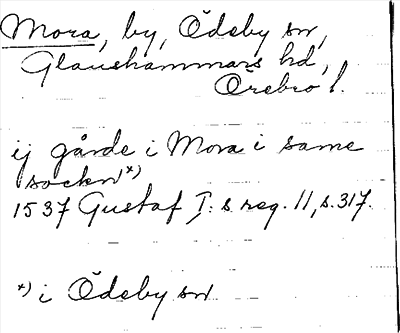 Mora, by, Ödeby sn,
Glanshammars hd,
Örebro l.
ij gårde i Mora i same
sockn*)
1537 Gustaf I:s reg. 11, s. 317.
*) i Ödeby sn